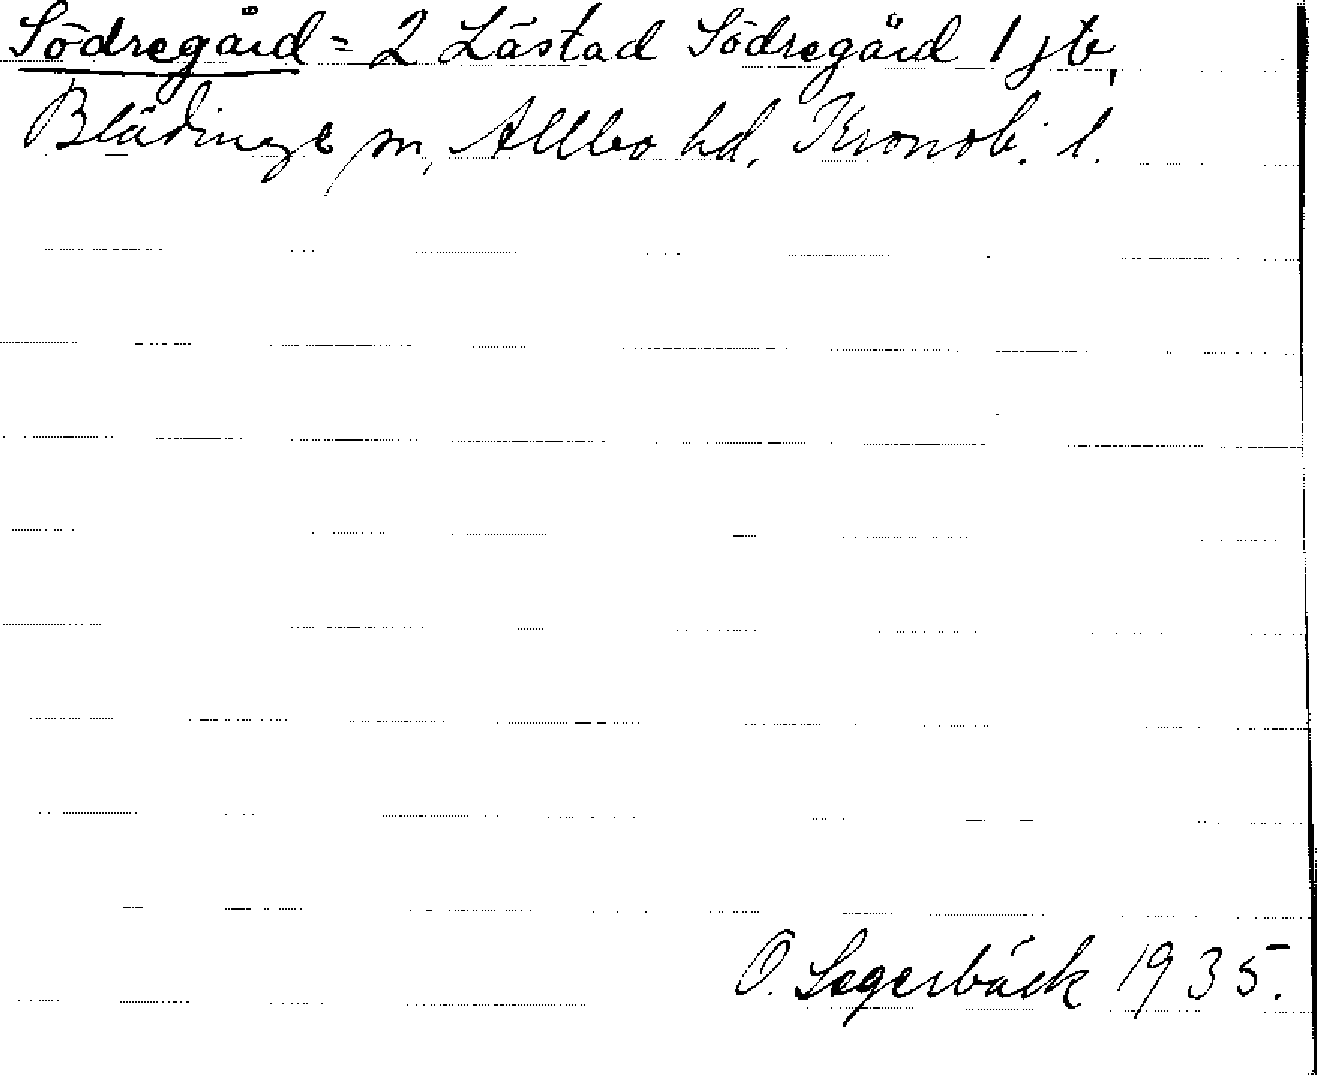 Södregård = 2 Låstad Södregård 1 jb,
Blädinge sn, Allbo hd. Kronob. l.
O. Segerbäck 1935.